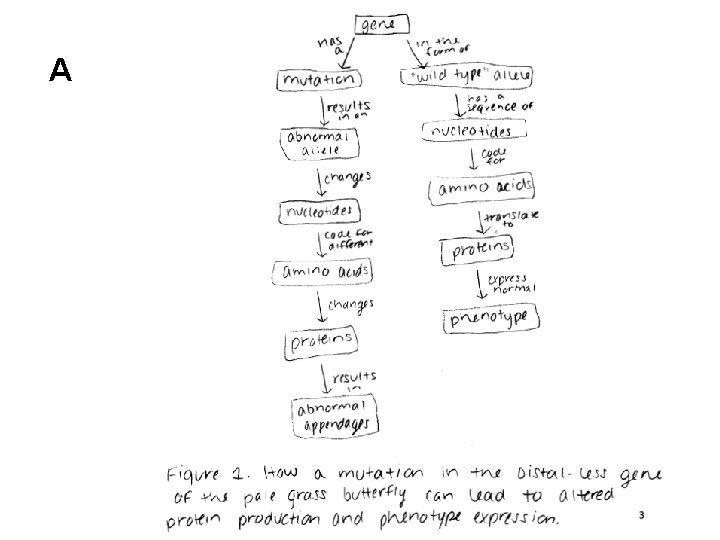 A
gene
has
a
in the
form of
mutation
"wild type" allele
results
in an
has a
sequence of
abnormal
allele
nucleotides
changes
code
for
nucleotides
amino acids
code for
different
translate
to
amino acids
proteins
changes
express
normal
proteins
phenotype
results
in
abnormal
appendages
Figure 1. How a mutation in the Distal-less gene
of the pale grass butterfly can lead to altered
protein production and phenotype expression.
3